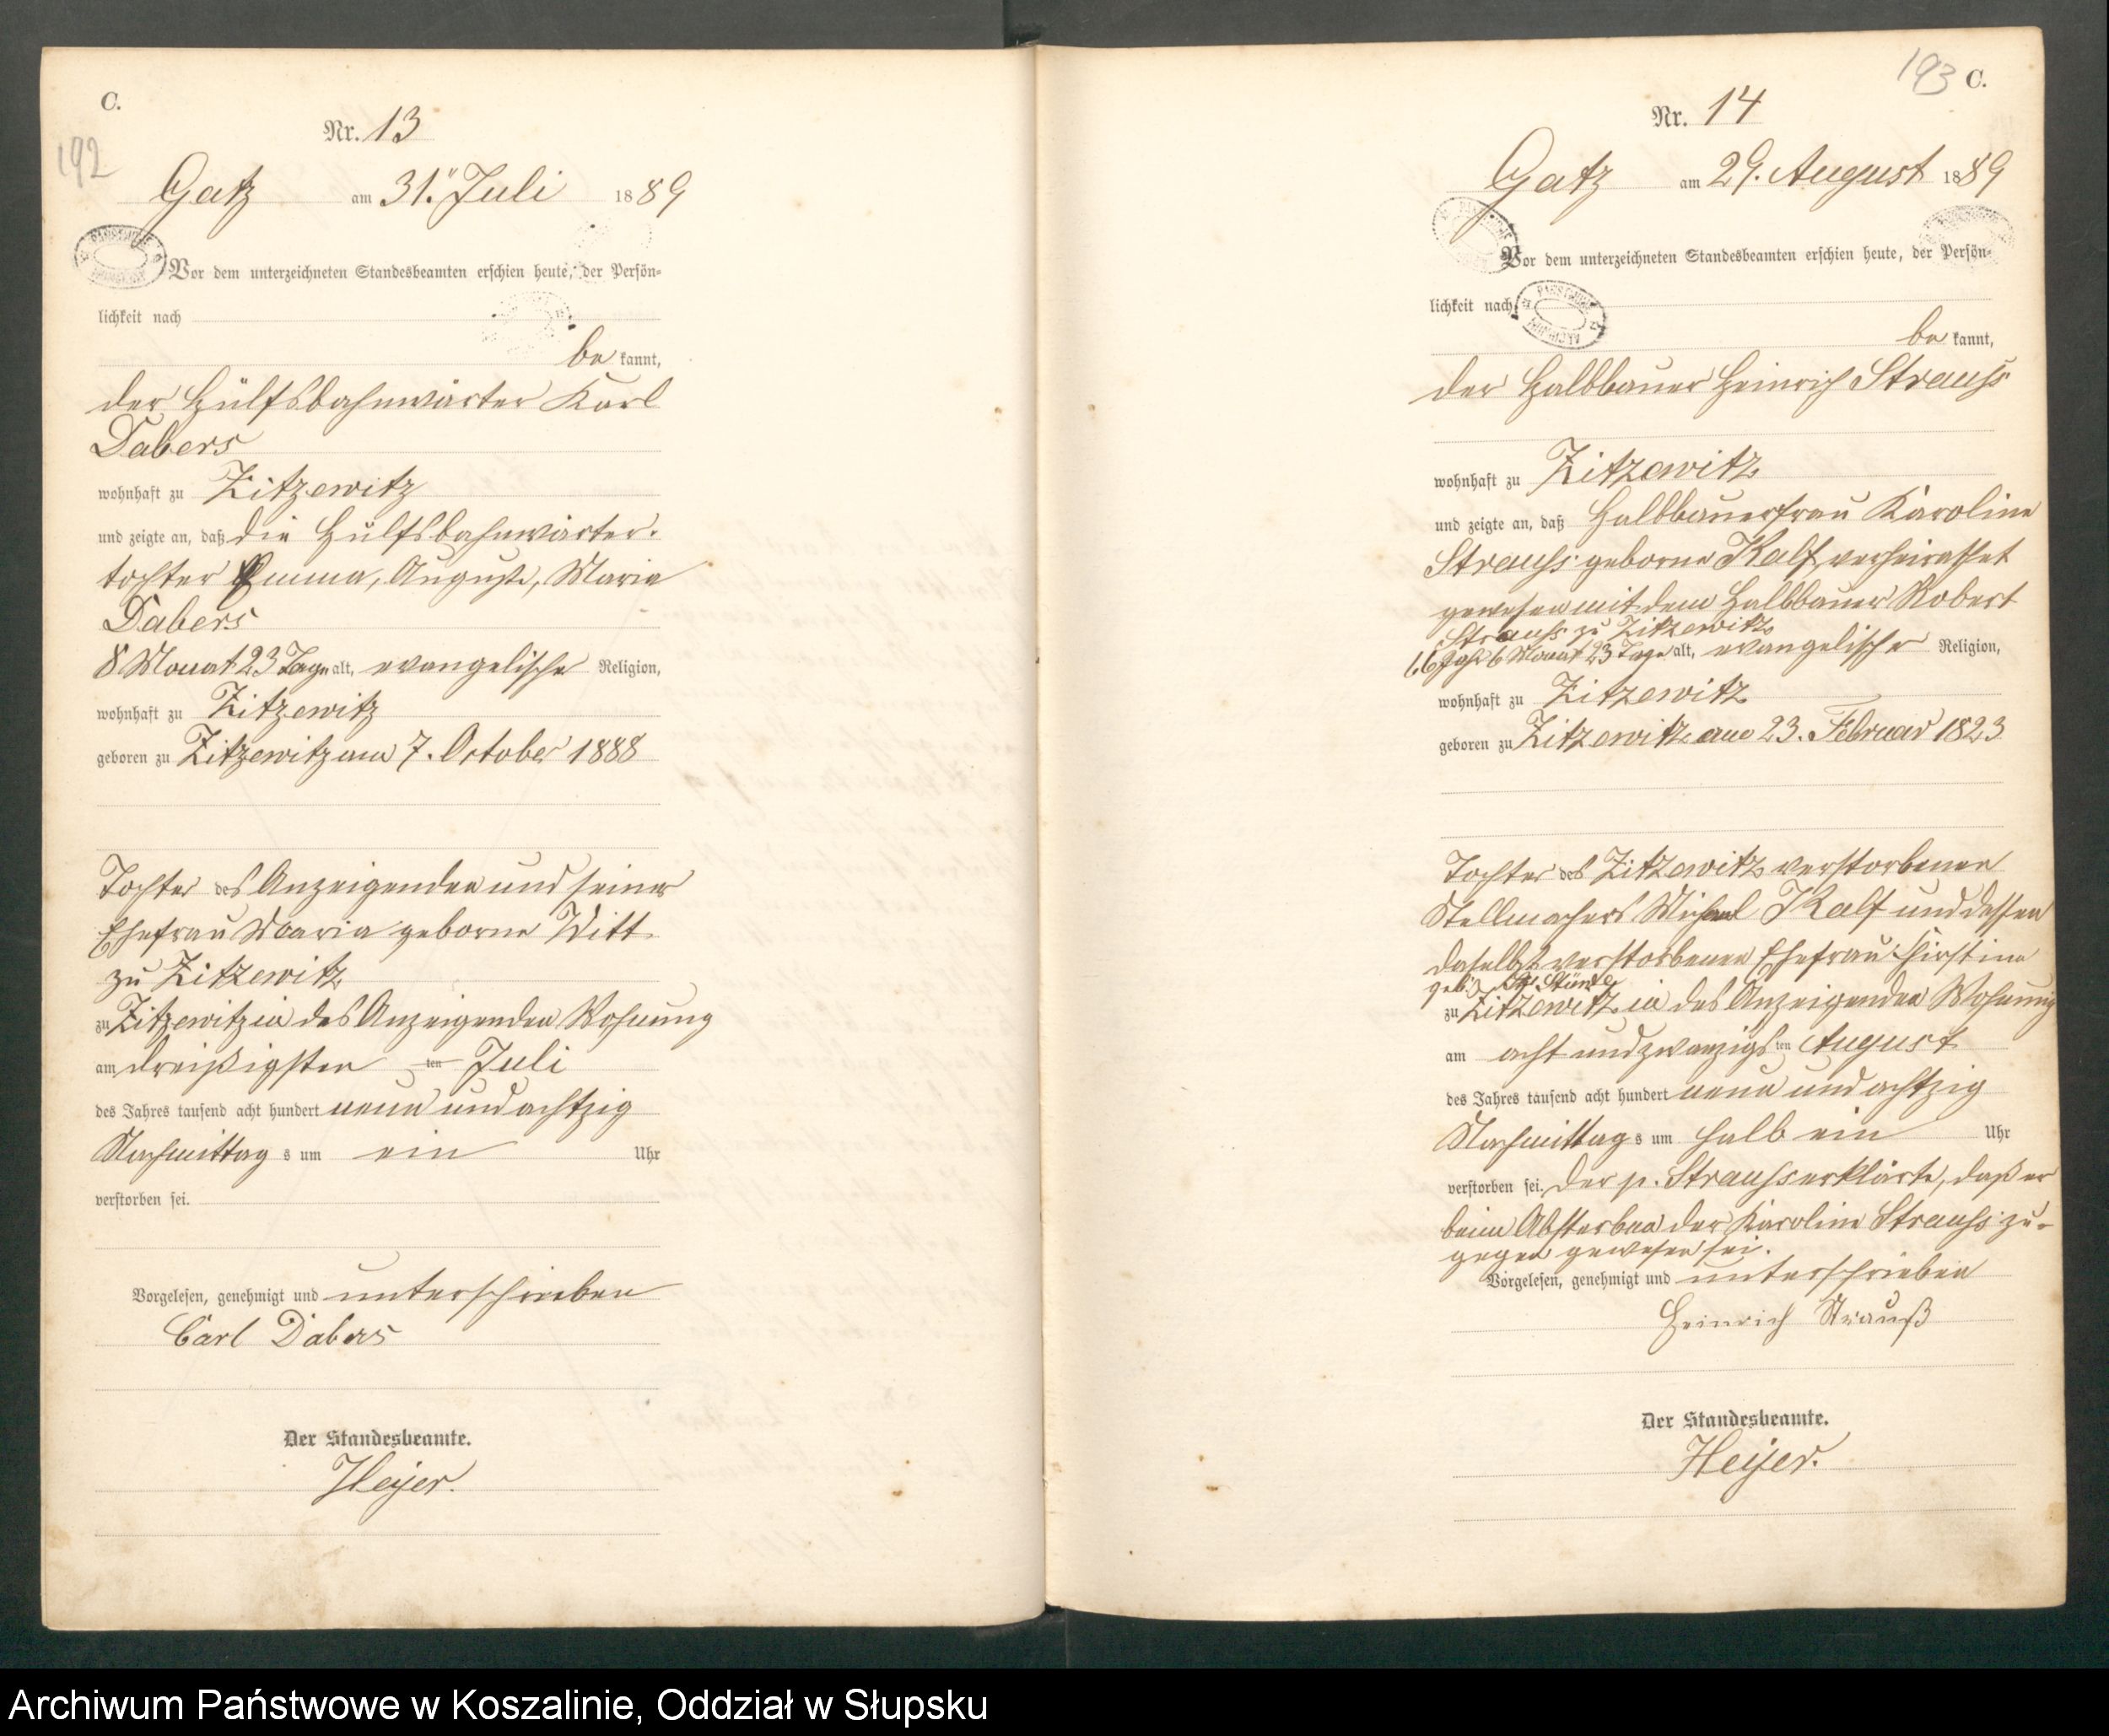 C.
192
Nr. 13
Gatz am 31. Juli 1889
Vor dem unterzeichneten Standesbeamten erschien heute, der Persön-
lichkeit nach
be kannt,
der Hülfsbahnwärter Karl
Dabers
wohnhaft zu Zitzewitz
und zeigte an, daß die Hülfsbahnwärter-
tochter Emma, Auguste, Maria
Dabers
8 Monat 23 Tage alt, evangelischer Religion,
wohnhaft zu Zitzewitz
geboren zu Zitzewitz am 7. October 1888
Tochter des Anzeigenden und seiner
Ehefrau Maria geborne Witt
zu Zitzewitz
zu Zitzewitz in des Anzeigenden Wohnung
am dreißigsten ten Juli
des Jahres tausend acht hundert neun und achtzig
Nachmittag s um ein Uhr
verstorben sei.
Vorgelesen, genehmigt und unterschrieben
Carl Dabers
Der Standesbeamte.
Heyer.
193 C.
Nr. 14
Gatz am 29. August 1889
Vor dem unterzeichneten Standesbeamten erschien heute, der Persön-
lichkeit nach
be kannt,
der Halbbauer Heinrich Strauss
wohnhaft zu Zitzewitz
und zeigte an, daß Halbbauerfrau Karoline
Strauss geborne Kalf verheirathet
gewesen mit dem Halbbauer Robert
Strauss zu Zitzewitz
66 Jahr 6 Monat 23 Tage alt, evangelischer Religion,
wohnhaft zu Zitzewitz
geboren zu Zitzewitz am 23. Februar 1823
Tochter des Zitzewitz verstorbenen
Stellmachers Michael Kalf und dessen
daselbst verstorbenen Ehefrau Christine
geb.
zu Zitzewitz in des Anzeigenden Wohnung
am acht und zwanzigs ten August
des Jahres tausend acht hundert neun und achtzig
Nachmittag s um halb ein Uhr
verstorben sei. Der p. Strauss erklärte, daß er
beim Absterben der Karoline Strauss zu-
gegen gewesen sei.
Vorgelesen, genehmigt und unterschrieben
Heinrich Strauß
Der Standesbeamte.
Heyer.
Archiwum Państwowe w Koszalinie, Oddział w Słupsku